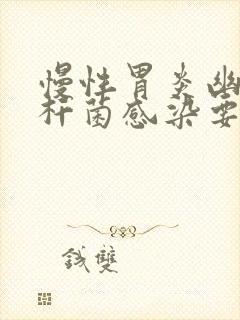 慢性胃炎幽
杆菌感染要
钱雙